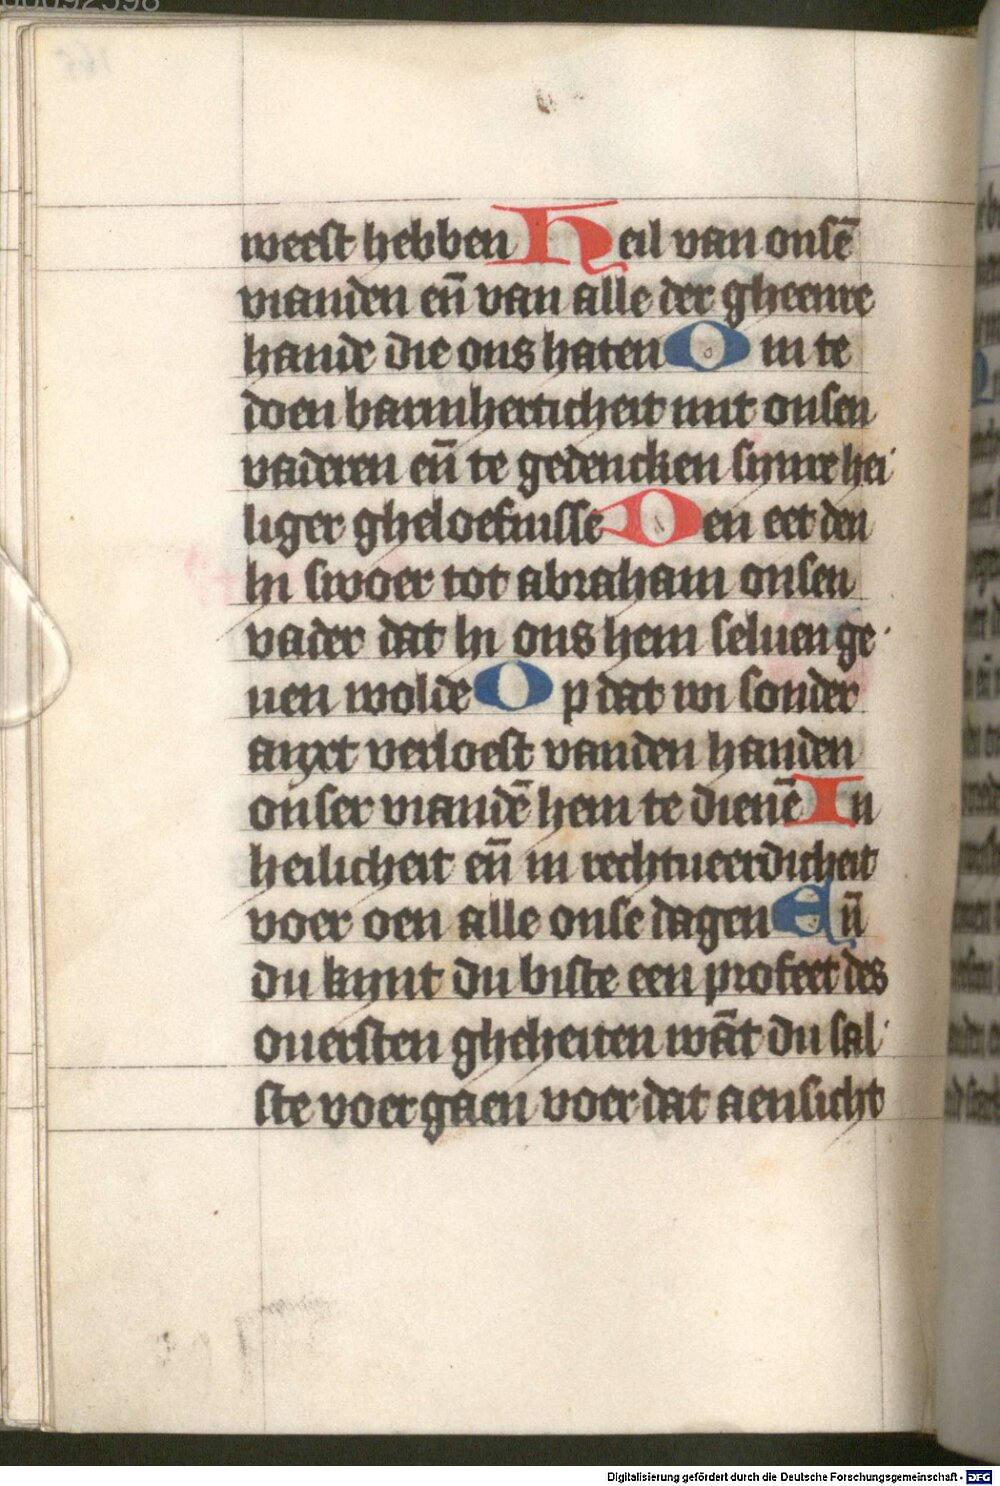 weest hebben Heil van onsē
vianden eñ van alle der gheenre
hande die ons haten O m te
doen barmherticheit mit onsen
vaderen eñ te gedencken sijnre hei
liger gheloefnisse Den eet den
hi swoer tot abraham onsen
vader dat hi ons hem seluen ge
uen wolde Op dat wi sonder
anxt verloest vanden handen
onser viandē hem te dienē In
heilicheit eñ in rechtueerdicheit
voer oen alle onse dagen Eñ
du kynt du biste een profeet des
ouersten gheheiten wāt du sal
ste voer gaen voer dat aensicht
Digitalisierung gefördert durch die Deutsche Forschungsgemeinschaft - DFG